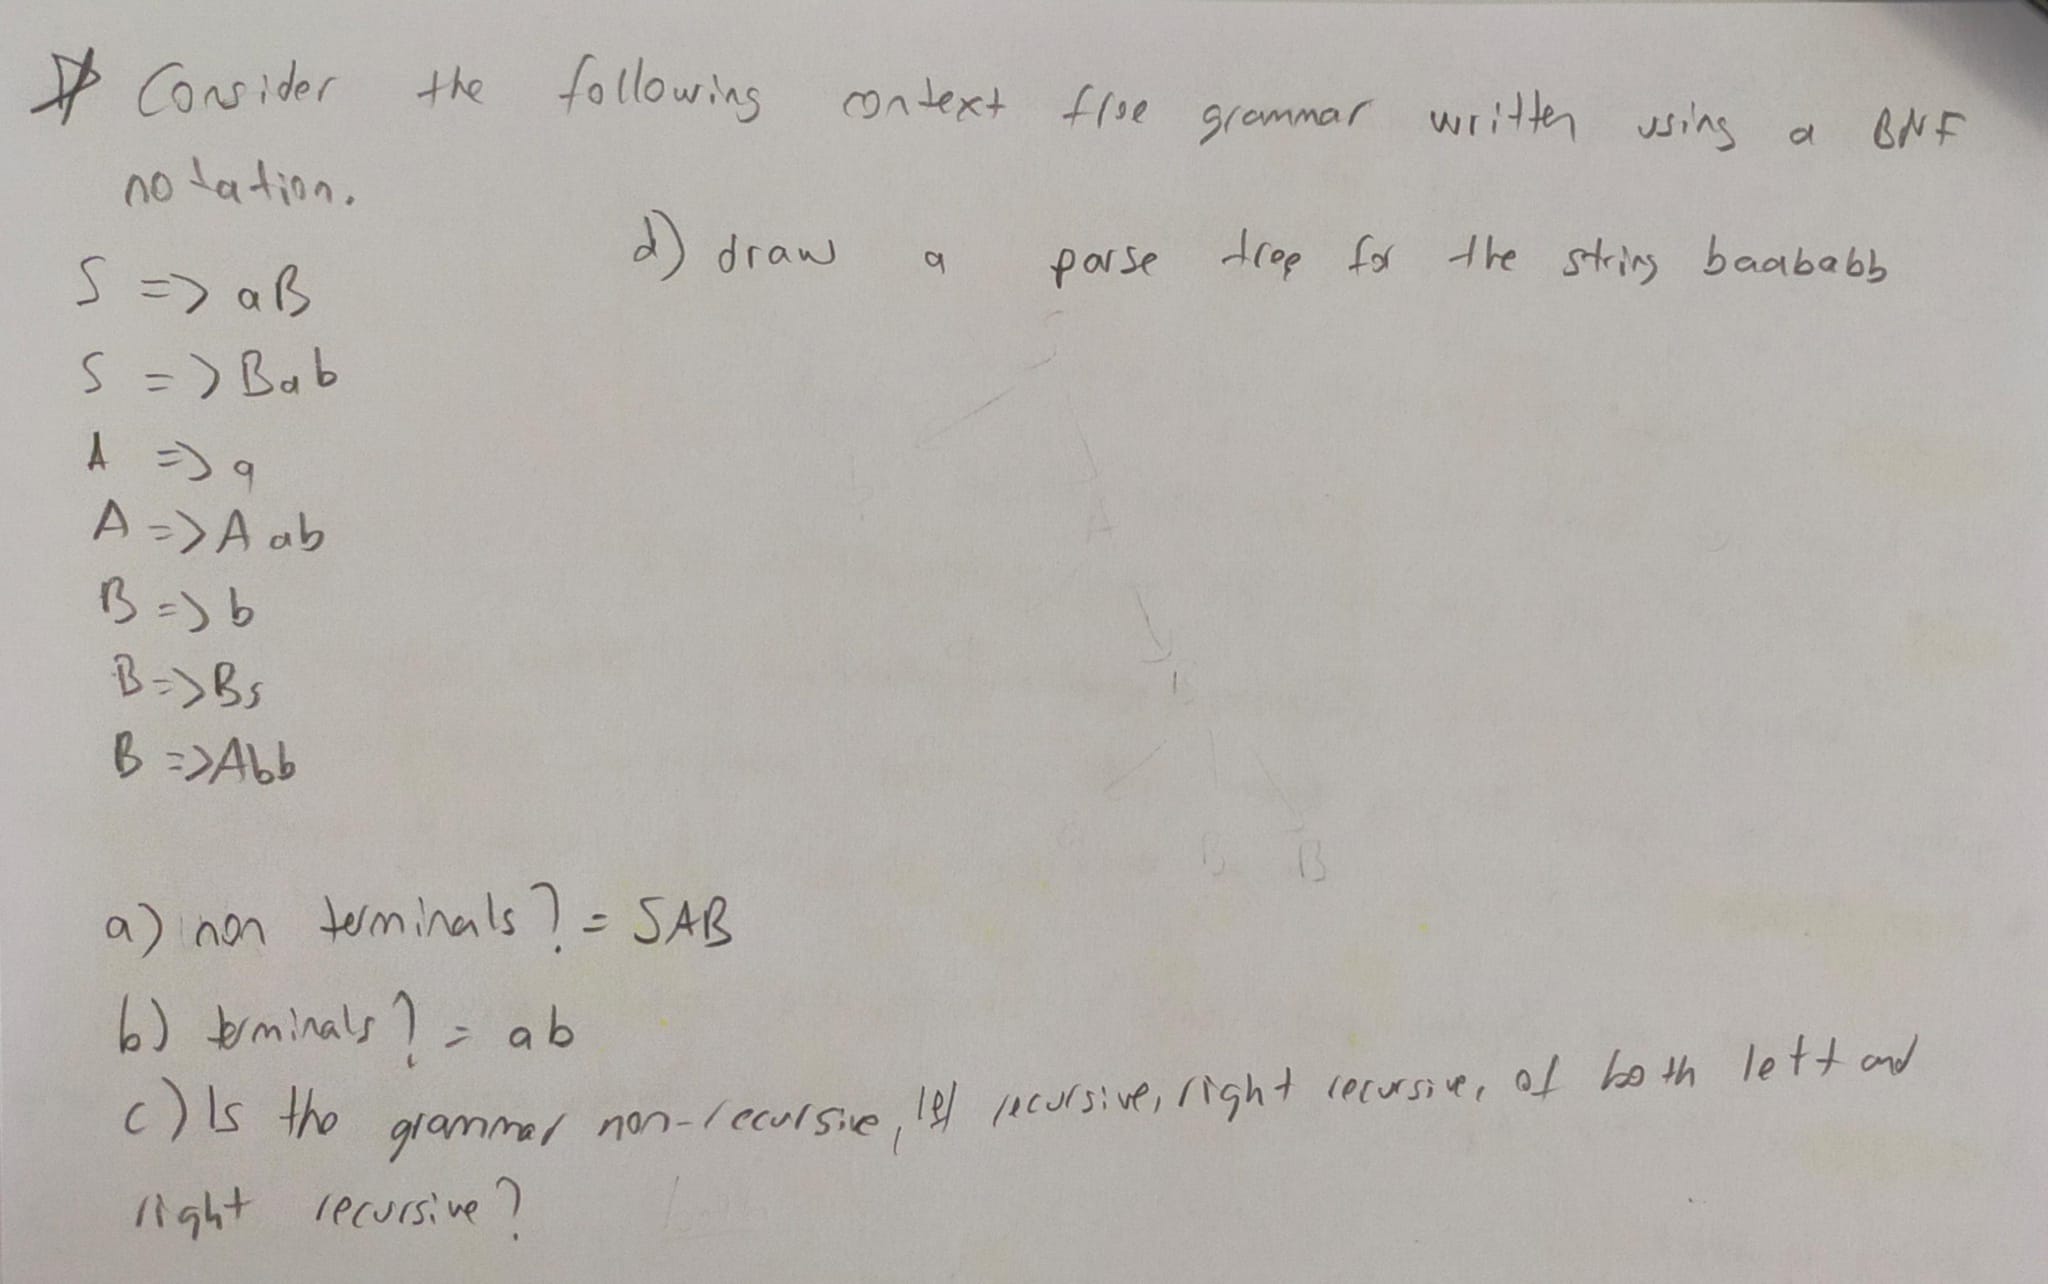 Consider the following context free grammar written using a BNF
notation.
S => aB
S => Bab
A => a
A => Aab
B => b
B => Bs
B => Abb
d) draw a parse tree for the string baababb
A
B B
a) non terminals? = SAB
b) terminals? = ab
c) Is the grammar non-recursive, left recursive, right recursive, of both left and
right recursive?